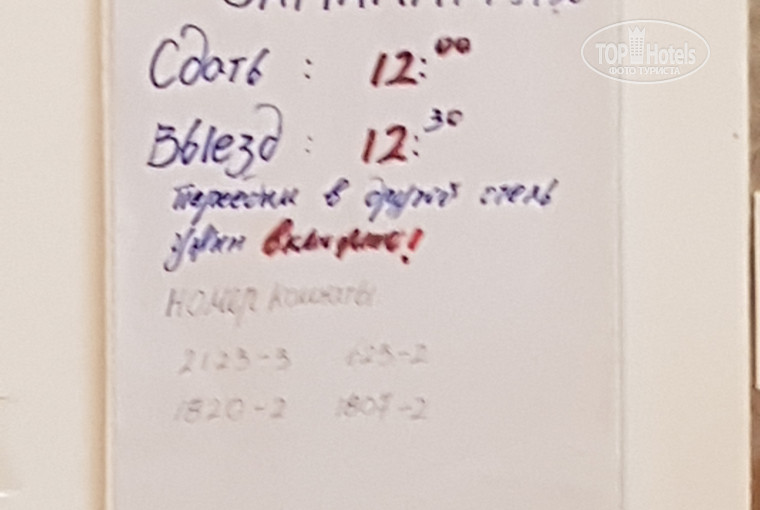 TOP Hotels
ФОТО ТУРИСТА
Сдать : 12:00
Выезд : 12:30
в другой отель
ужин включено!
номер комнаты
2123-3 623-2
1820-2 1807-2